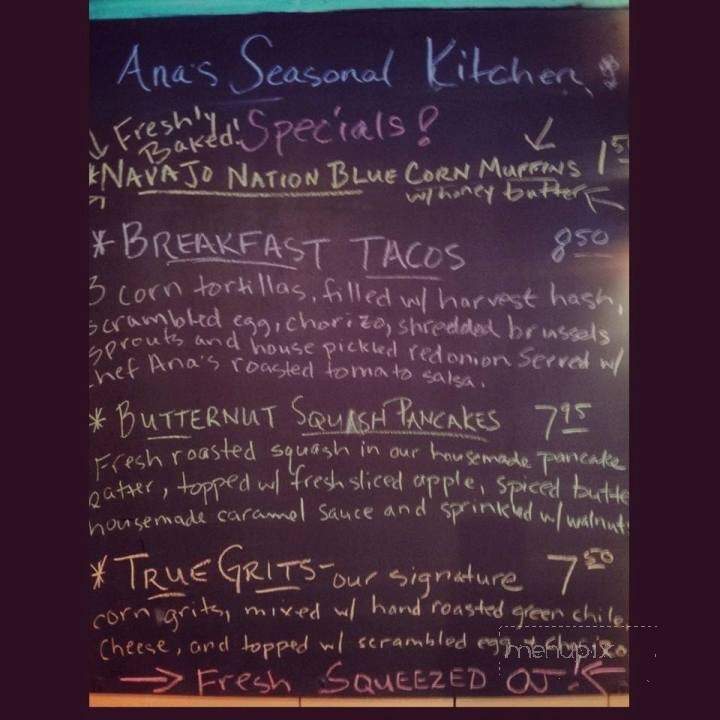 Ana's Seasonal Kitchen
Fresh'ly Baked! Specials!
*NAVAJO NATION BLUE CORN MUFFINS 1 5
w/honey butter
* BREAKFAST TACOS 8 50
3 corn tortillas, filled w/ harvest hash,
scrambled egg, chorizo, shredded brussels
sprouts and house pickled red onion served w/
hef Ana's roasted tomato salsa.
* BUTTERNUT SQUASH PANCAKES 7 95
Fresh roasted squash in our housemade pancake
batter, topped w/ fresh sliced apple, spiced butte
housemade caramel sauce and sprinkled w/ walnut
* TRUE GRITS- our signature 7 50
corn grits, mixed w/ hand roasted green chile,
cheese, and topped w/ scrambled egg
→ Fresh SQUEEZED OJ! ←
menupix